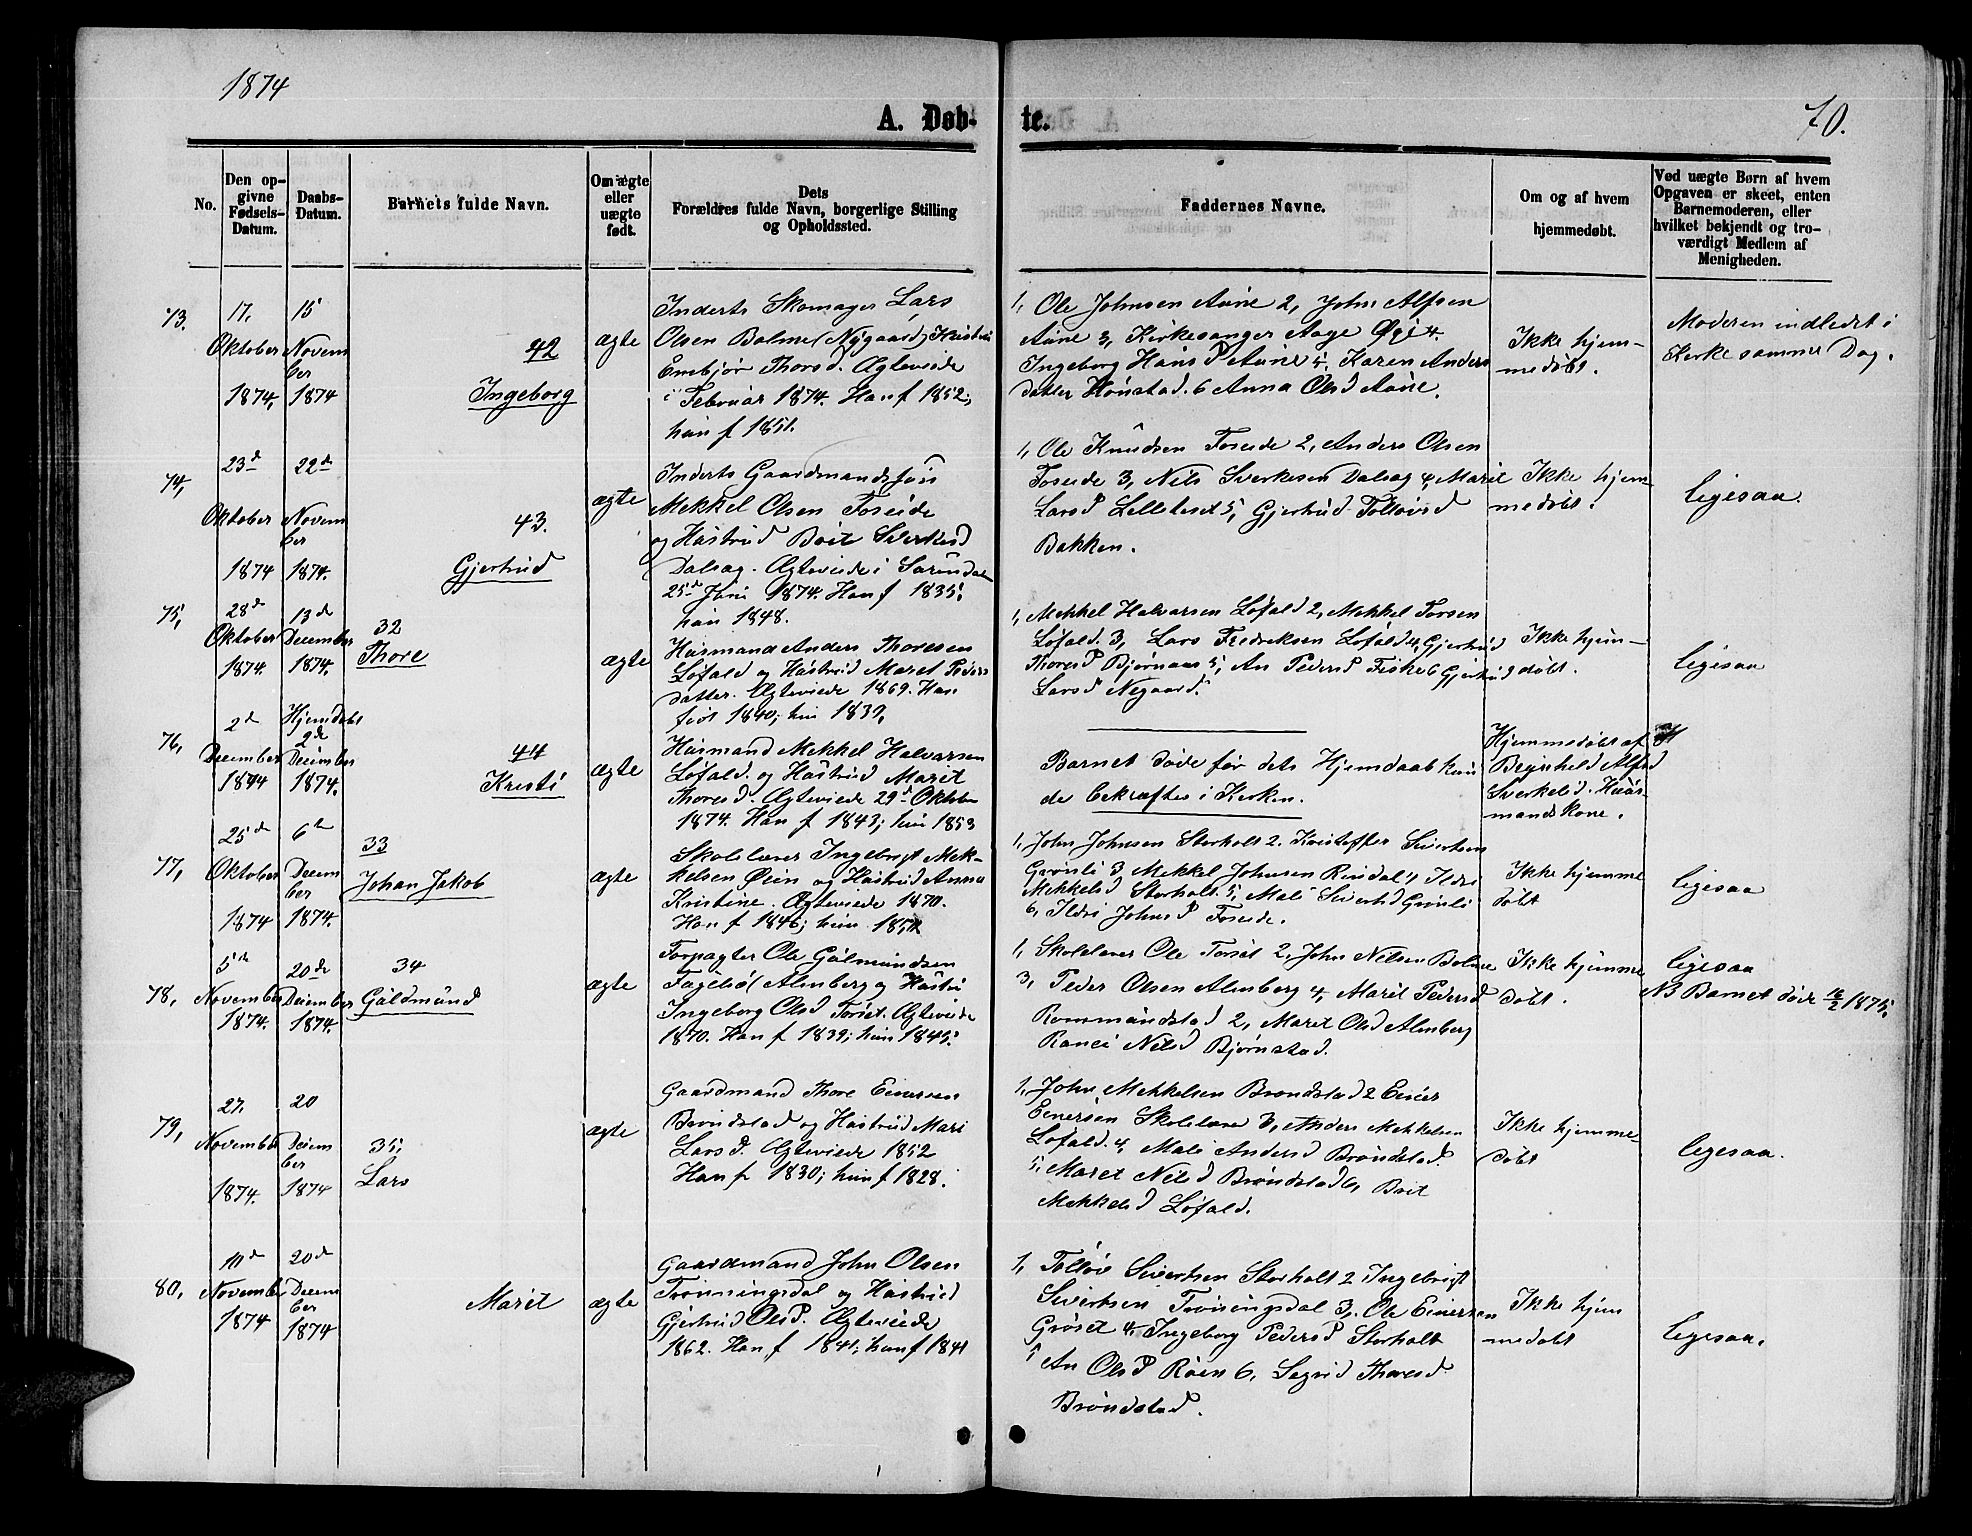 1874
70.
A. Døb- te.
No.
Den op-
givne
Fødsels-
Datum.
Daabs-
Datum.
Barnets fulde Navn.
Om ægte
eller
uægte
født.
Dets
Forældres fulde Navn, borgerlige Stilling
og Opholdssted.
Faddernes Navne.
Om og af hvem
hjemmedøbt.
Ved uægte Børn af hvem
Opgaven er skeet, enten
Barnemoderen, eller
hvilket bekjendt og tro-
værdigt Medlem af
Menigheden.
73.
17.
Oktober
1874,
15
Novem
ber
1874
42
Ingeborg
ægte
Inderts Skomager Lars
Olsen Bolme (Nygaard)
Enebjør Thorsd. Ægteviede
i Februar 1874. Han f 1852;
hun f 1851.
1, Ole Johnsen Aune 2, John Alfsen
Aune 3, Kirkesanger Aage Øye 4.
Ingeborg Hans D Aune 5. Karen Anders
datter Hønstad. 6 Anna Olsd Aune.
Ikke hjem-
medøbt.
Moderen indledet i
Kirke samme Dag.
74,
23d
Oktober
1874
22d
Novem
ber
1874.
43.
Gjertrud
ægte
Inderts Gaardmandssøn
Mekkel Olsen Foseide
og Hustrud Brit Sverkesd
Dalsag. Ægteviede i Surendal
25d Juni 1874. Han f 1835;
hun 1848.
1, Ole Knudsen Foseide 2, Anders Olsen
Foseide 3, Nils Sverkesen Dalsag 4, Marit
Larsd 5, Gjertrud
Bakken.
Ikke hjem
medøbt.
ligesaa.
75,
28d
Oktober
1874
13d
December
1874.
32
Thore
ægte
Husmand Anders Thoresen
Løfald og Hustrud Maret Peders
datter. Ægteviede 1869. Han
født 1840; hun 1839,
1, Mekkel Halvarsen Løfald 2, Mekkel Torsen
Løfald. 3, Lars Fredriksen Løfald 4, Gjertrud
Thoresd Bjørnaas 5, An Pedersd Fiske 6 Gjertrud
Larsd Negaard.
Ikke hjem-
døbt.
ligesaa
76,
2d
December
1874
Hjemdøbt
2d
December
1874.
44
Kristi
ægte
Husmand Mekkel Halvarsen
Løfald. og Hustrud Marit
Thoresd. Ægteviede 29d Oktober
1874. Han f 1843; hun 1853
Barnet døde før dets Hjemdaab kun
de bekræftes i Kirken.
Hjemmedøbt af
Brynhild Alfsd
Sverkeli d. Huus
mandskone.
77,
25de
Oktober
1874
6te
Decem
ber
1874.
33
Johan Jakob
ægte
Skolelærer Ingebrigt Mek-
kelsen Øien og Hustrud Anna
Kristine. Ægteviede 1870.
Han f 1846; hun 1851
1, John Johnsen Storholt 2. Kristoffer Sivertsen
Grønli 3, Mekkel Johnsen Rindal 4 Ildri
Mekkelsd Storholt 5, Mali Sivertsd Grønli
6, Ildri Johnsd Foseide.
Ikke hjemme
døbt
ligesaa
78,
5de
November
1874.
20de
December
1874.
34
Guldmund
ægte
Forpagter Ole Gulmundsen
Fugelsøi Almberg og Hustru
Ingeborg Olsd Torset. Ægteviede
1870. Han f 1839; hun 1845.
1, Skolelærer Ole Torset 2, John Nilsen Bolme
3, Peder Olsen Almberg 4, Marit Pedersd
Rommundstad 2, Maret Olsd Almberg
Ranei Nilsd Bjørnstad.
Ikke hjemme
døbt.
ligesaa
NB Barnet døde 16/2 1875.
79,
27.
November
1874.
20
Decem
ber
1874
35,
Lars
ægte
Gaardmand Thore Einersen
Brøndstad og Hustrud Mari
Larsd. Ægteviede 1852
Han f 1830; hun f 1828.
1, John Mekkelsen Brøndstad 2 Einer
Einersen Skolelære 3, Anders Mekkelsen
Løfald. 4, Mali Andersd Brøndstad
5, Maret Nilsd Brøndstad 6, Brit
Mekkelsd Løfald.
Ikke hjemme-
døbt
ligesaa.
80,
10d
November
1874
20de
Decem
ber
1874
Marit
ægte
Gaardmand John Olsen
Trønsningsdal og Hustrud
Gjertrud Olsd. Ægteviede
1862. Han f 1841; hun f 1841
1, Tolløv Sivertsen Storholt 2 Ingebrigt
Sivertsen Trønsningsdal 3. Ole Einersen
Grøset 4, Ingeborg Pedersd Storholt
5 An Olsd Røen 6, Segrid Thoresd
Brøndstad.
Ikke hjem
medøbt
ligesaa.